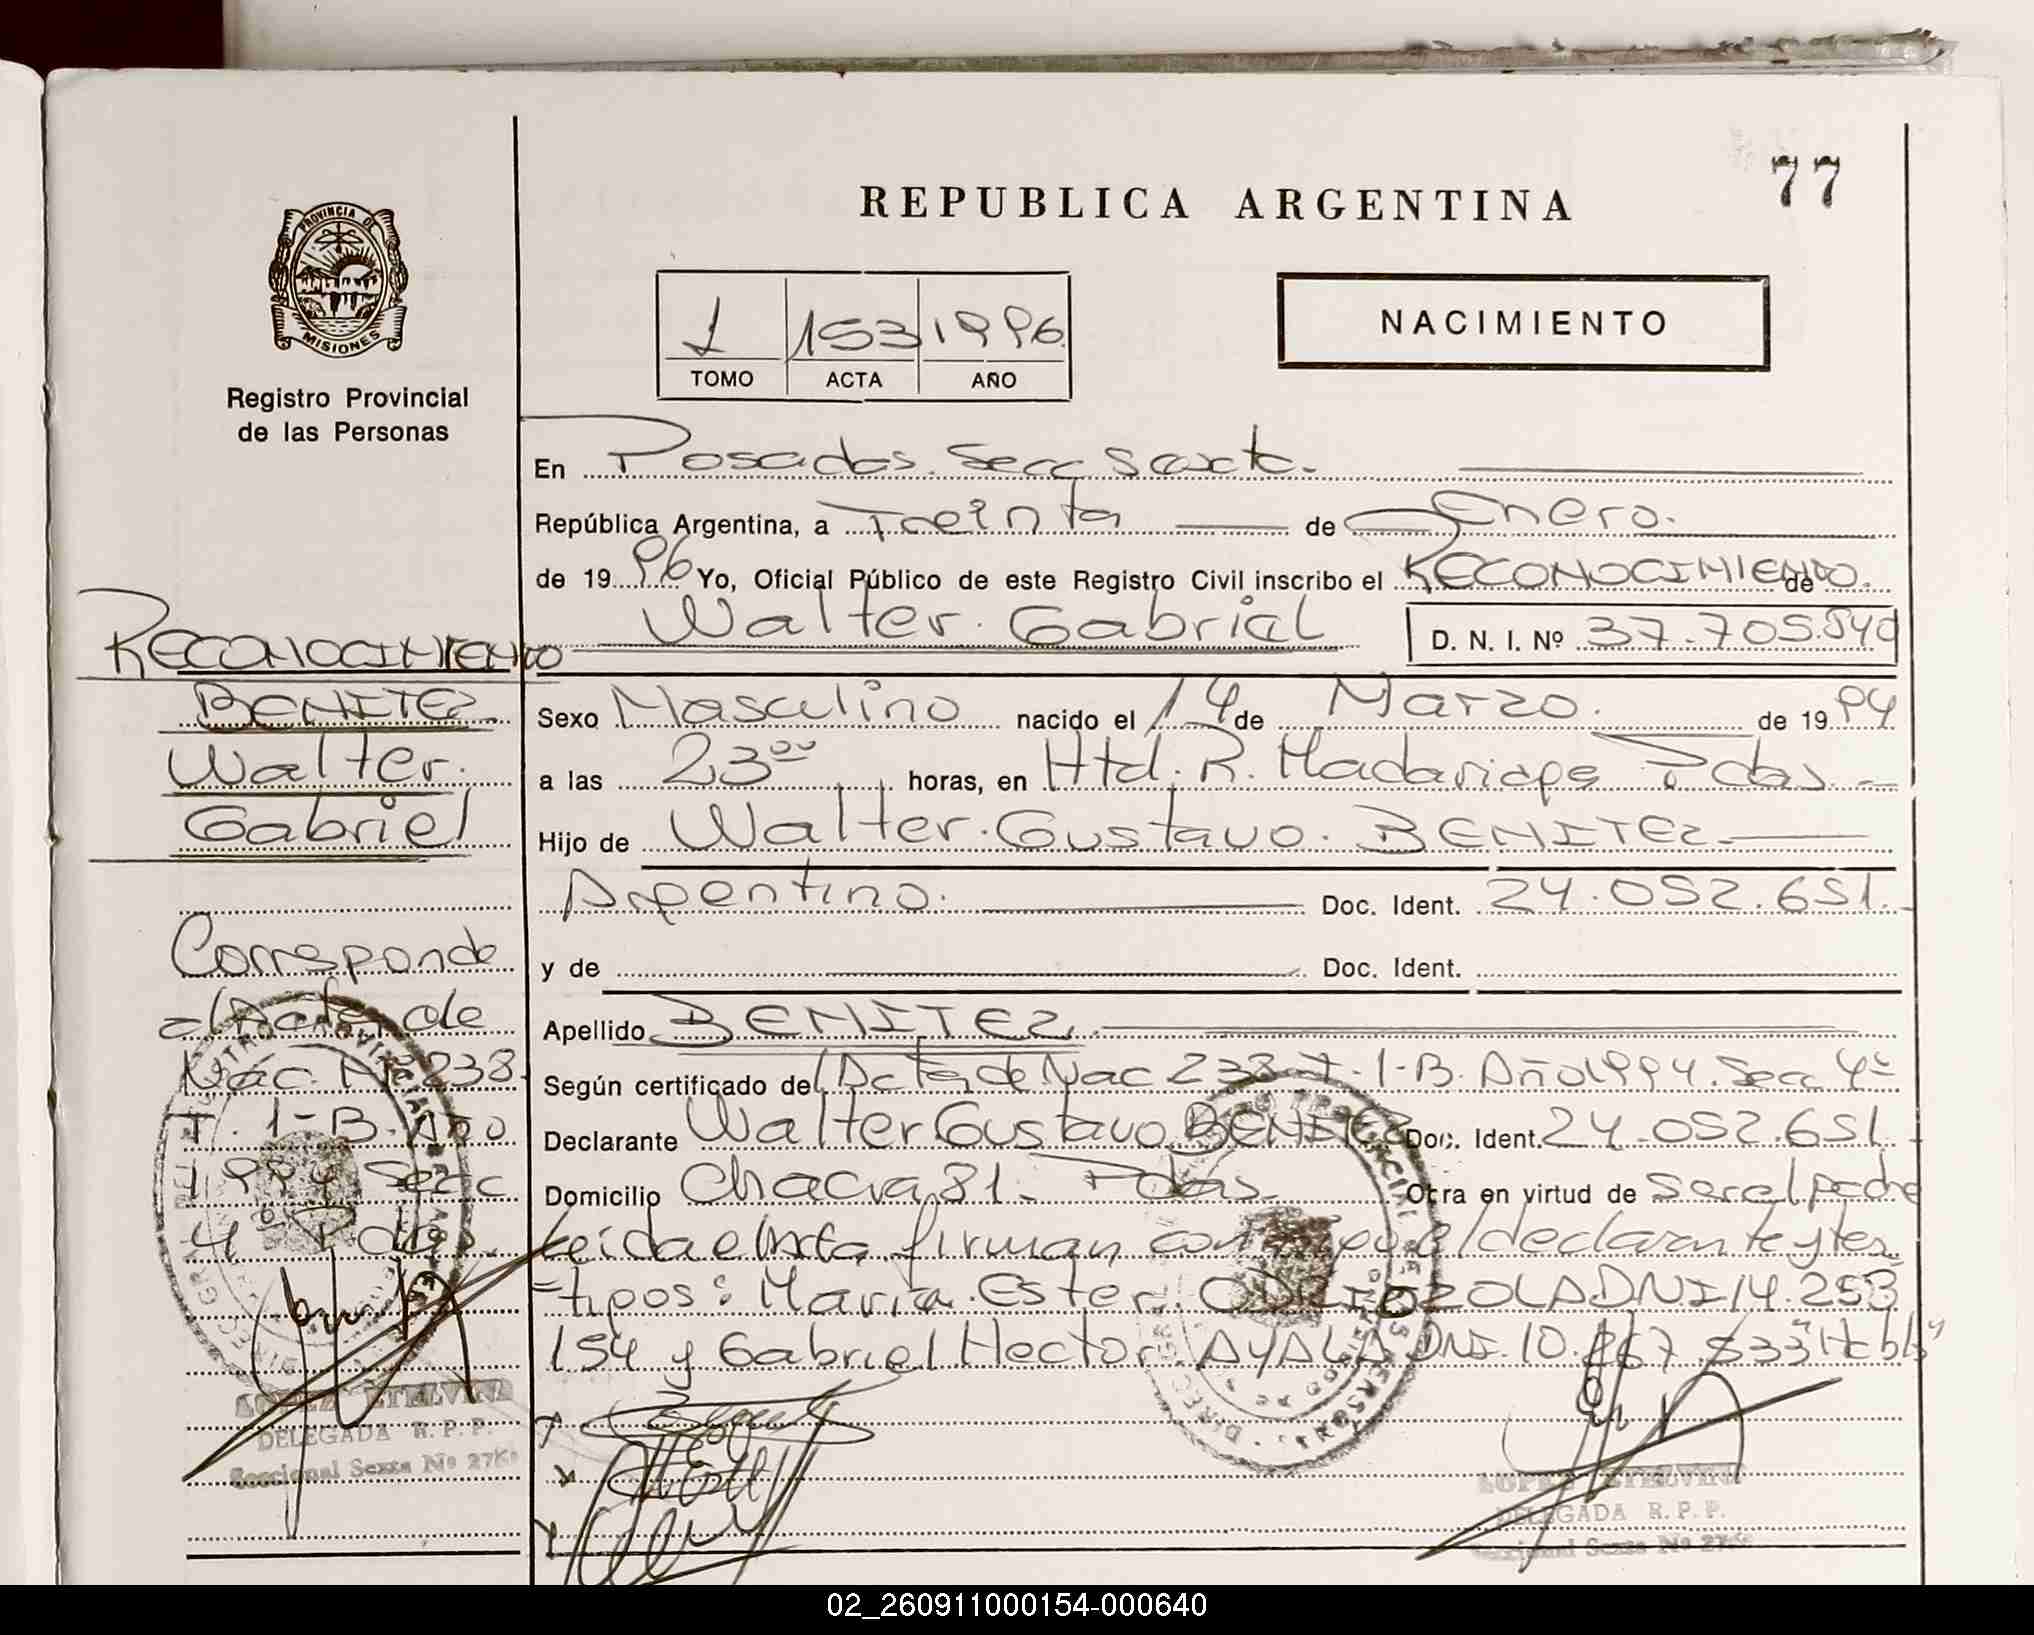 77
REPUBLICA ARGENTINA
PROVINCIA DE
MISIONES
Registro Provincial
de las Personas
1 153 1996
TOMO ACTA AÑO
NACIMIENTO
En Posadas. Secc Sexta.
República Argentina, a Treinta de Enero.
de 1996 Yo, Oficial Público de este Registro Civil inscribo el RECONOCIMIENTO. de
Walter. Gabriel D. N. I. Nº 37.705.840
Sexo Masculino nacido el 14 de Marzo. de 1994
a las 23⁰⁰ horas, en Htal. R. Madariaga Pdas.
Hijo de Walter. Gustavo. BENITEZ
Argentino. Doc. Ident. 24.052.651.
y de Doc. Ident.
Apellido BENITEZ
Según certificado del Acta de Nac 238 T. 1-B. Año 1994. Secc 4ª
Declarante Walter Gustavo BENITEZ Doc. Ident. 24.052.651.
Domicilio Chacra 81. Pdas. Otra en virtud de ser el padre
Leida el Acta firman el declarante y tes
=tigos: Maria. Ester. DNI 14.253
154 y Gabriel Hector AYALA DNI. 10. 533
RECONOCIMIENTO
BENITEZ
Walter.
Gabriel
Corresponde
al Acta de
Nac. Nº 238
T. 1-B. Año
1994 Secc
4ª Pdas.
LOPEZ ETELVINA
DELEGADA R. P. P.
Seccional Sexta Nº 27
LOPEZ ETELVINA
DELEGADA R. P. P.
Seccional Sexta Nº 27
02_260911000154-000640